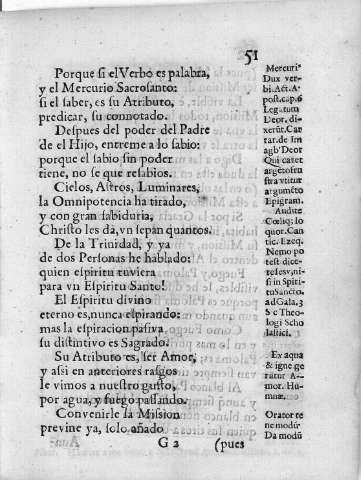 51
Porque si el Verbo es palabra,
y el Mercurio Sacrosanto:
si el saber, es su Atributo,
predicar, su connotado.
Despues del poder del Padre
de el Hijo, entreme a lo sabio:
porque el sabio sin poder
tiene, no se que resabios.
Cielos, Astros, Luminares,
la Omnipotencia ha tirado,
y con gran sabiduria,
Christo les dà, vn sepan quantos.
De la Trinidad, y ya
de dos Personas he hablado:
quien espiritu tuviera
para vn Espiritu Santo!
El Espiritu divino
eterno es, nunca espirando:
mas la espiracion pasiva
su distintivo es Sagrado.
Su Atributo es, ser Amor,
y assi en anteriores rasgos
le vimos a nuestro gusto,
por agua, y fuego passando.
Convenirle la Mission
previne ya, solo añado
G 2 (pues
Mercuri⁹
Dux ver-
bi. Act. A-
post. cap. 6
Legatum
Deor. di-
xerũt. Can
tar. de Im
agb⁹ Deor
Qui caret
argẽto frũ
stra vtitur
argumẽto
Epigram.
Audite
Cœliq; lo
quor. Can
tic. Ezeq.
Nemo po
test dice-
re Iesv, ni-
si in Spiri-
tu Sancto.
ad Gala. 3
S c Theo-
logi Scho
lastici.
Ex aqua
& igne ge
ratur A-
mor. Hu-
mnæ.
Orator te
ne modũ
Da modũ